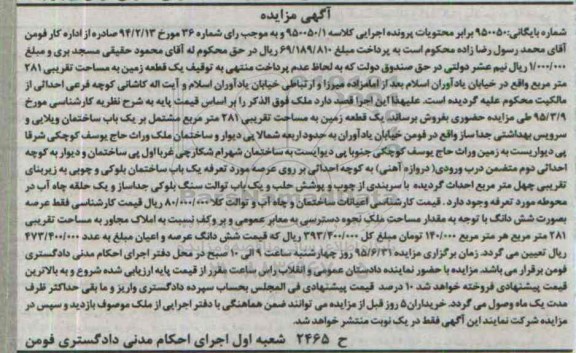 آگهی مزایده
شماره بایگانی: ۹۵۰۰۵۰ برابر محتویات پرونده اجرایی کلاسه ۹۵۰۰۵۰/۱ و به موجب رای شماره ۳۶ مورخ ۹۴/۲/۱۳ صادره از اداره کار فومن
آقای محمد رسول رضا زاده محکوم است به پرداخت مبلغ ۶۹/۱۸۹/۸۱۰ ریال در حق محکوم له آقای محمود حقیقی مسجد بری و مبلغ
۱/۰۰۰/۰۰۰ ریال نیم عشر دولتی در حق صندوق دولت که به لحاظ عدم پرداخت منتهی به توقیف یک قطعه زمین به مساحت تقریبی ۲۸۱
متر مربع واقع در خیابان یادآوران اسلام بعد از امامزاده میرزا و ارتباطی خیابان یادآوران اسلام و آیت اله کاشانی کوچه فرعی احداثی از
مالکیت محکوم علیه گردیده است. علیهذا این اجرا قصد دارد ملک فوق الذکر را بر اساس قیمت پایه به شرح نظریه کارشناسی مورخ
۹۵/۳/۹ طی مزایده حضوری بفروش برساند. یک قطعه زمین به مساحت تقریبی ۲۸۱ متر مربع مشتمل بر یک باب ساختمان ویلایی و
سرویس بهداشتی جدا ساز واقع در فومن خیابان یادآوران به حدود اربعه شمالا پی دیوار و ساختمان ملک وراث حاج یوسف کوچکی شرقا
پی دیواریست به زمین وراث حاج یوسف کوچکی جنوبا پی دیوایست به ساختمان شهرام شکارچی غربا اول پی ساختمان و دیوار به کوچه
احداثی دوم متضمن درب ورودی( دروازه آهنی) به کوچه احداثی بر روی عرصه مورد تعرفه یک باب ساختمان بلوکی و چوبی به زیربنای
تقریبی چهل متر مربع احداث گردیده با سربندی از چوب و پوشش حلب و یک باب توالت سنگ بلوکی جداساز و یک حلقه چاه آب در
محوطه مورد تعرفه وجود دارد . قیمت کارشناسی اعیانات ساختمان و چاه آب و توالت کلا ۸۰/۰۰۰/۰۰۰ ریال قیمت کارشناسی فقط عرصه
بصورت شش دانگ با توجه به مقدار مساحت ملک نحوه دسترسی به معابر عمومی و پر و کف نسبت به املاک مجاور به مساحت تقریبی
۲۸۱ متر مربع هر متر مربع ۱۴۰/۰۰۰ تومان مبلغ کل ۳۹۳/۴۰۰/۰۰۰ ریال که قیمت شش دانگ عرصه و اعیان مبلغ به عدد ۴۷۳/۴۰۰/۰۰۰
ریال تعیین می گردد. زمان برگزاری مزایده ۹۵/۶/۳۱ روز چهارشنبه ساعت ۹ الی ۱۰ صبح در محل دفتر اجرای احکام مدنی دادگستری
فومن برقرار می باشد. مزایده با حضور نماینده دادستان عمومی و انقلاب راس ساعت مقرر از قیمت پایه ارزیابی شده شروع و به بالاترین
قیمت پیشنهادی فروخته خواهد شد ۱۰ درصد قیمت پیشنهادی فی المجلس بحساب سپرده دادگستری واریز و ما بقی حداکثر ظرف
مدت یک ماه وصول می گردد. خریداران ۵ روز قبل از مزایده می توانند ضمن هماهنگی با دفتر اجرایی از ملک موصوف بازدید و سپس در
مزایده شرکت نمایند این آگهی فقط در یک نوبت منتشر خواهد شد.
ح ۲۴۶۵ شعبه اول اجرای احکام مدنی دادگستری فومن